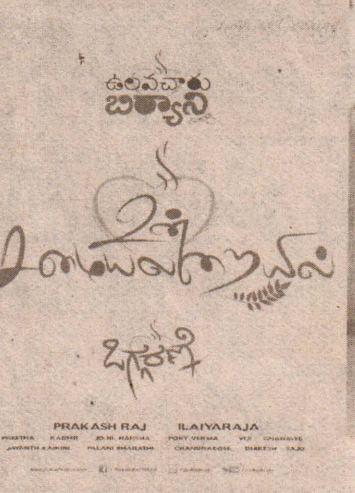 ఉలవచారు
బిర్యాని
உன்
சமையலறையில்
ಒಗ್ಗರಣೆ
PRAKASH RAJ ILAIYARAJA
PREETHA KARMB JO.NI. HARSHA PONY VERMA VIJI GNANAVEL
JAYANTH KAIKINI PALANI BHARATHI CHANDRABOSE